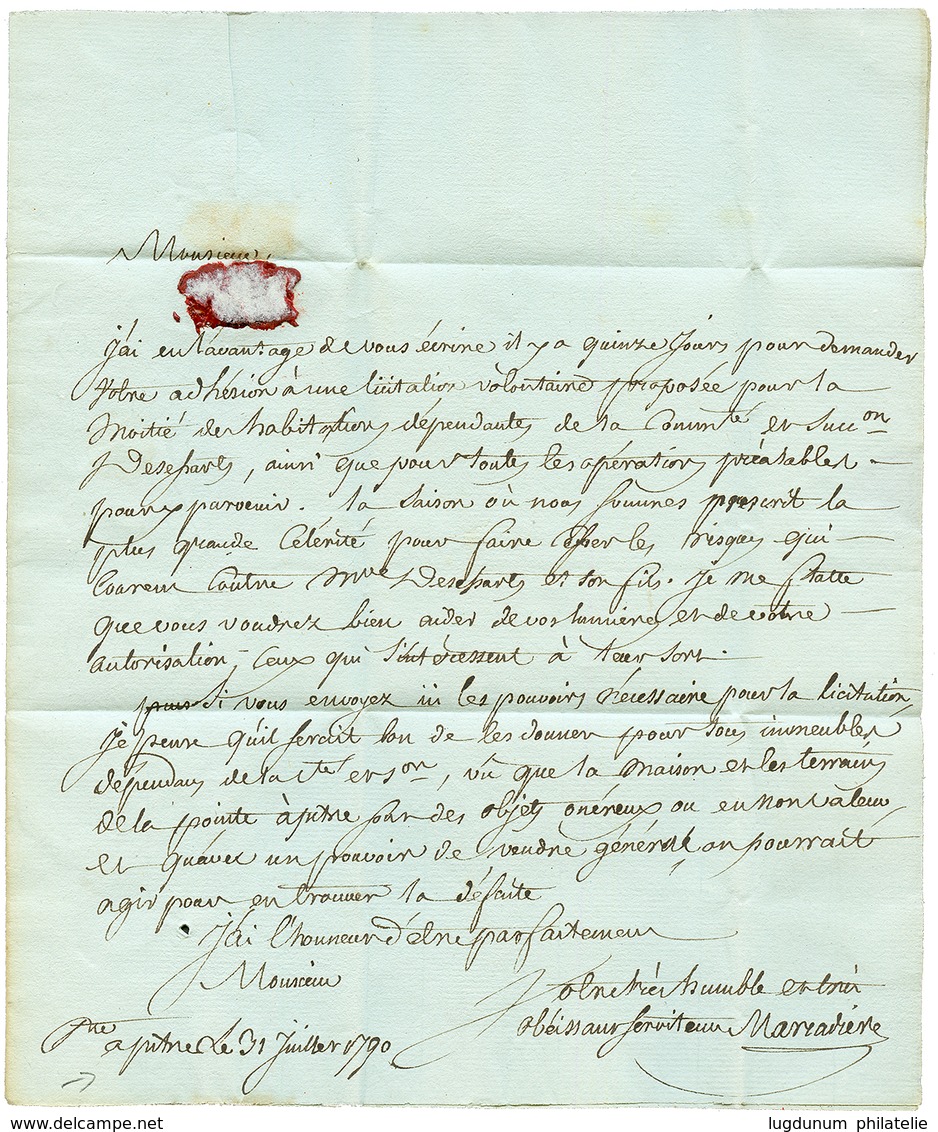 Monsieur,
J'ai eu l'avantage de vous écrire il y a quinze Jours pour demander
Votre adhésion à une licitation volontaire proposée pour la
Moitié des habitations dépendantes de la Commté et Succon
Desessarts, ainsi que pour toutes les opérations préalables
pour y parvenir. la Saison où nous sommes prescrit la
plus grande Célérité pour faire les risques qui
Courent Contre Mme Desessarts et son fils. Je me flatte
que vous voudrez bien aider de vos lumières et de votre
autorisation, Ceux qui s'intéressent à leur sort.
Si vous envoyez ici les pouvoirs Nécessaire pour la licitation,
Je pense qu'il serait bon de les donner pour tous immeubles
dépendans de la Cté et Son, vû que la Maison et les terrains
de la pointe à pitre sont des objets onéreux ou en non valeur,
et qu'avec un pouvoir de vendre général, on pourrait
agir pour en trouver la défaite
J'ai l'honneur d'être parfaitement
Monsieur
Votre très humble et très
obéissant serviteur Marcadière
Pte à pitre Le 31 Juillet 1790
lugdunum philatelie